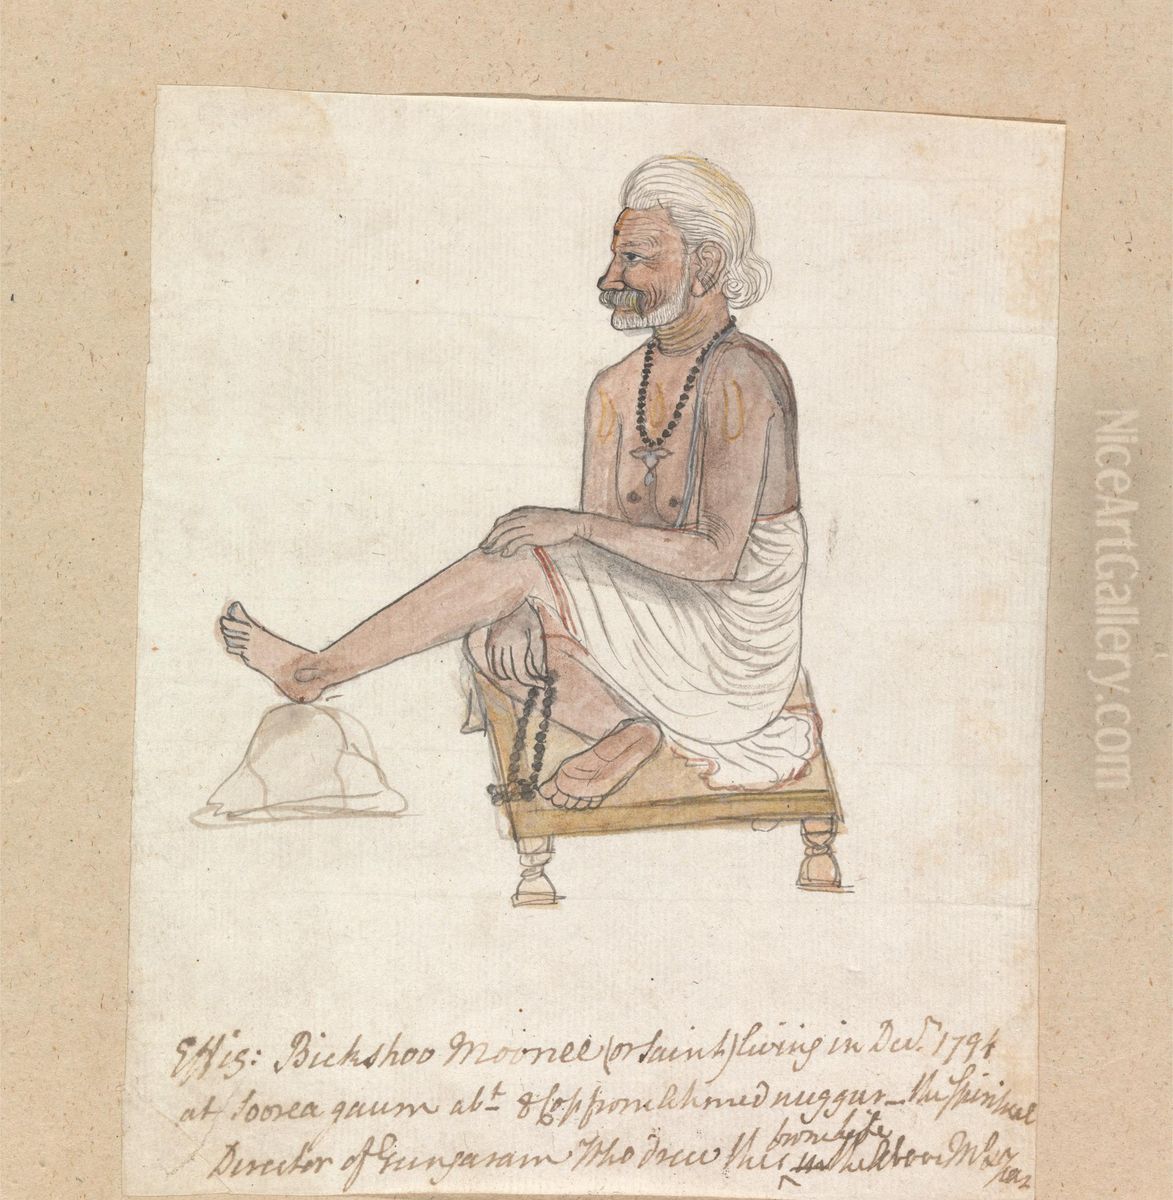 Effig: Bickshoo Moonee (or Saint) living in Decr. 1794
at Soorea gaum abt. 8 Cos from Ahmednuggur _ the Spiritual
Director of Gungaram Who drew this from life in the above Mo &
year
NiceArtGallery.com